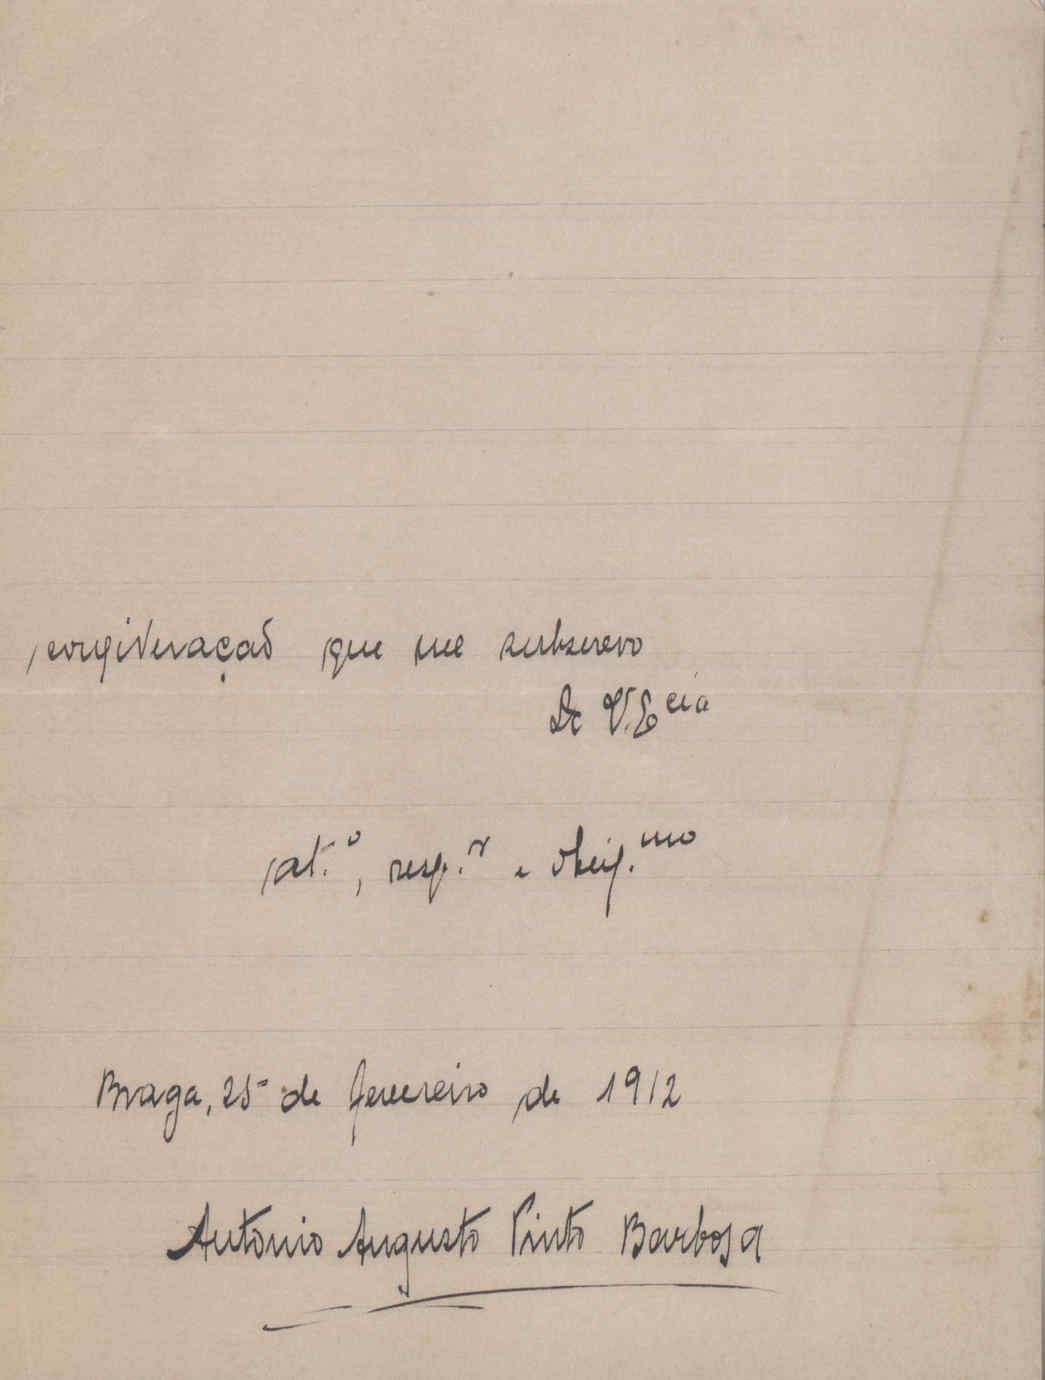 consideração que me subscrevo
De V. Ecia
at.º, resp.r e obrig.mo
Braga, 25 de fevereiro de 1912
Antonio Augusto Pinto Barbosa